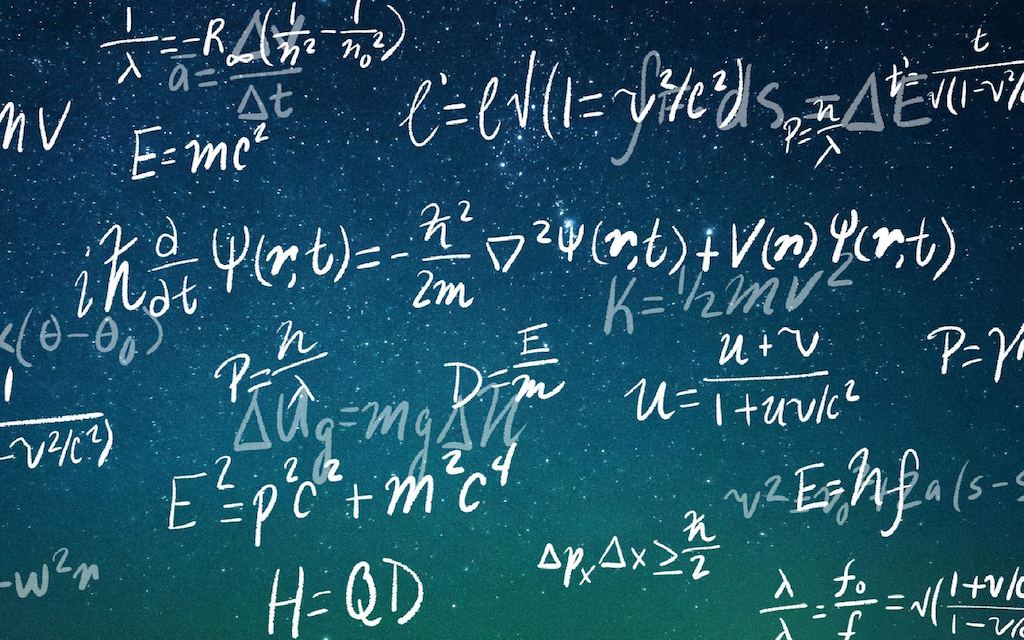 1/λ = -R∞(1/n² - 1/n₀²)
a = Δv/Δt
mv
E=mc²
l'=l√(1=v²/c²)
ds = ΔE
P=h/λ
t'= t/√(1-v²/c
iħ ∂/∂t Ψ(r,t) = - ħ²/2m ∇²Ψ(r,t) + V(r)Ψ(r,t)
K=½mv²
<(θ-θ₀)
1
-v²/c²)
P=h/λ
D=E/m
u= u+v/1+uv/c²
P=γm
ΔUg=mgΔh
E²=p²c²+m²c⁴
v²
E=hf
2a(s-s
-w²r
H=QD
ΔpₓΔx≥ħ/2
λ/λ = f₀/f = √(1+v/c/1-v/c